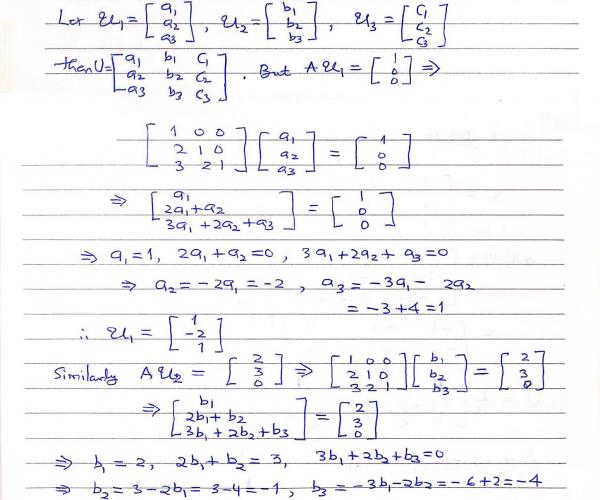 Let U₁ = [a₁ a₂ a₃], U₂ = [b₁ b₂ b₃], U₃ = [c₁ c₂ c₃]
then U = [a₁ b₁ c₁ a₂ b₂ c₂ a₃ b₃ c₃]. But A U₁ = [1 0 0] ⇒
[1 0 0 2 1 0 3 2 1] [a₁ a₂ a₃] = [1 0 0]
⇒ [a₁ 2a₁+a₂ 3a₁+2a₂+a₃] = [1 0 0]
⇒ a₁=1, 2a₁+a₂=0, 3a₁+2a₂+a₃=0
⇒ a₂=-2a₁=-2, a₃=-3a₁- 2a₂
= -3+4=1
∴ U₁ = [1 -2 1]
Similarly A U₂ = [2 3 0] ⇒ [1 0 0 2 1 0 3 2 1] [b₁ b₂ b₃] = [2 3 0]
⇒ [b₁ 2b₁+b₂ 3b₁+2b₂+b₃] = [2 3 0]
⇒ b₁=2, 2b₁+b₂=3, 3b₁+2b₂+b₃=0
⇒ b₂=3-2b₁=3-4=-1, b₃=-3b₁-2b₂=-6+2=-4